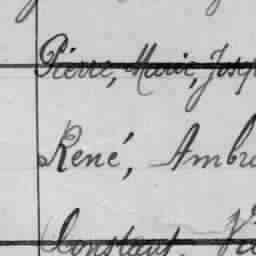 Pierre, Marie, Josep
René, Ambro
Constant, Vi